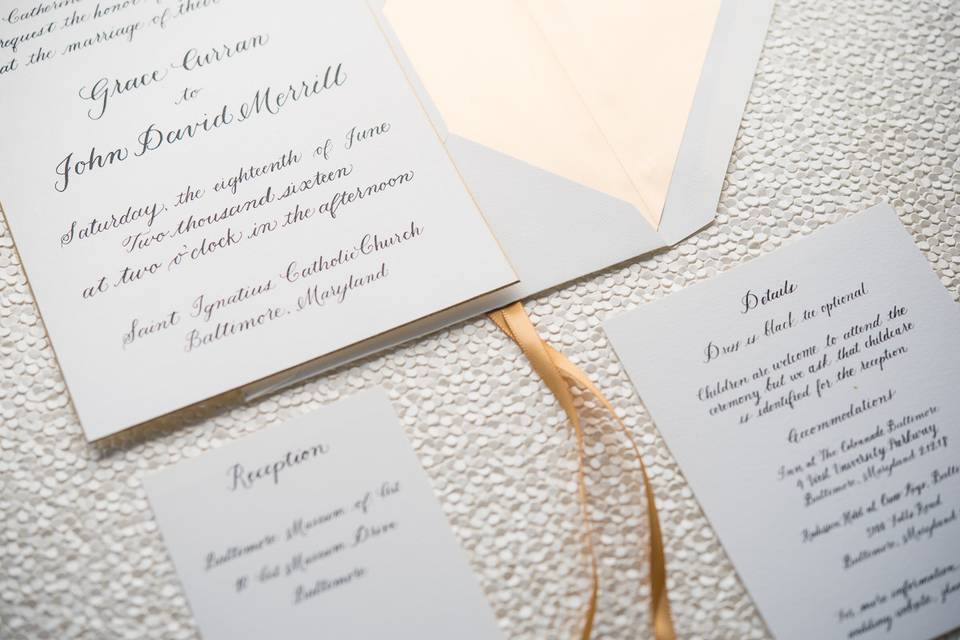 Catherine
request the honor of
at the marriage of their
Grace Curran
to
John David Merrill
Saturday, the eighteenth of June
Two thousand sixteen
at two o'clock in the afternoon
Saint Ignatius Catholic Church
Baltimore, Maryland
Reception
Baltimore Museum of Art
10 Art Museum Drive
Baltimore
Details
Dress is black tie optional
Children are welcome to attend the
ceremony but we ask that childcare
is identified for the reception
Accommodations
Inn at The Colonnade Baltimore
4 West University Parkway
Baltimore, Maryland 21218
Radisson Hotel at Cross Keys,
Falls Road
Baltimore, Maryland
For more information,
wedding website,